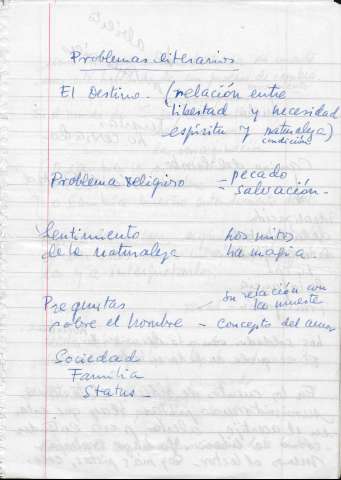 Problemas literarios
El Destino. (relación entre
libertad y necesidad
espíritu y naturaleza)
condición
Problema religioso = pecado
salvación -
Sentimiento los mitos
de la naturaleza la magia
Preguntas - su relación con
la muerte
sobre el hombre - concepto del amor
Sociedad
Familia
Status -